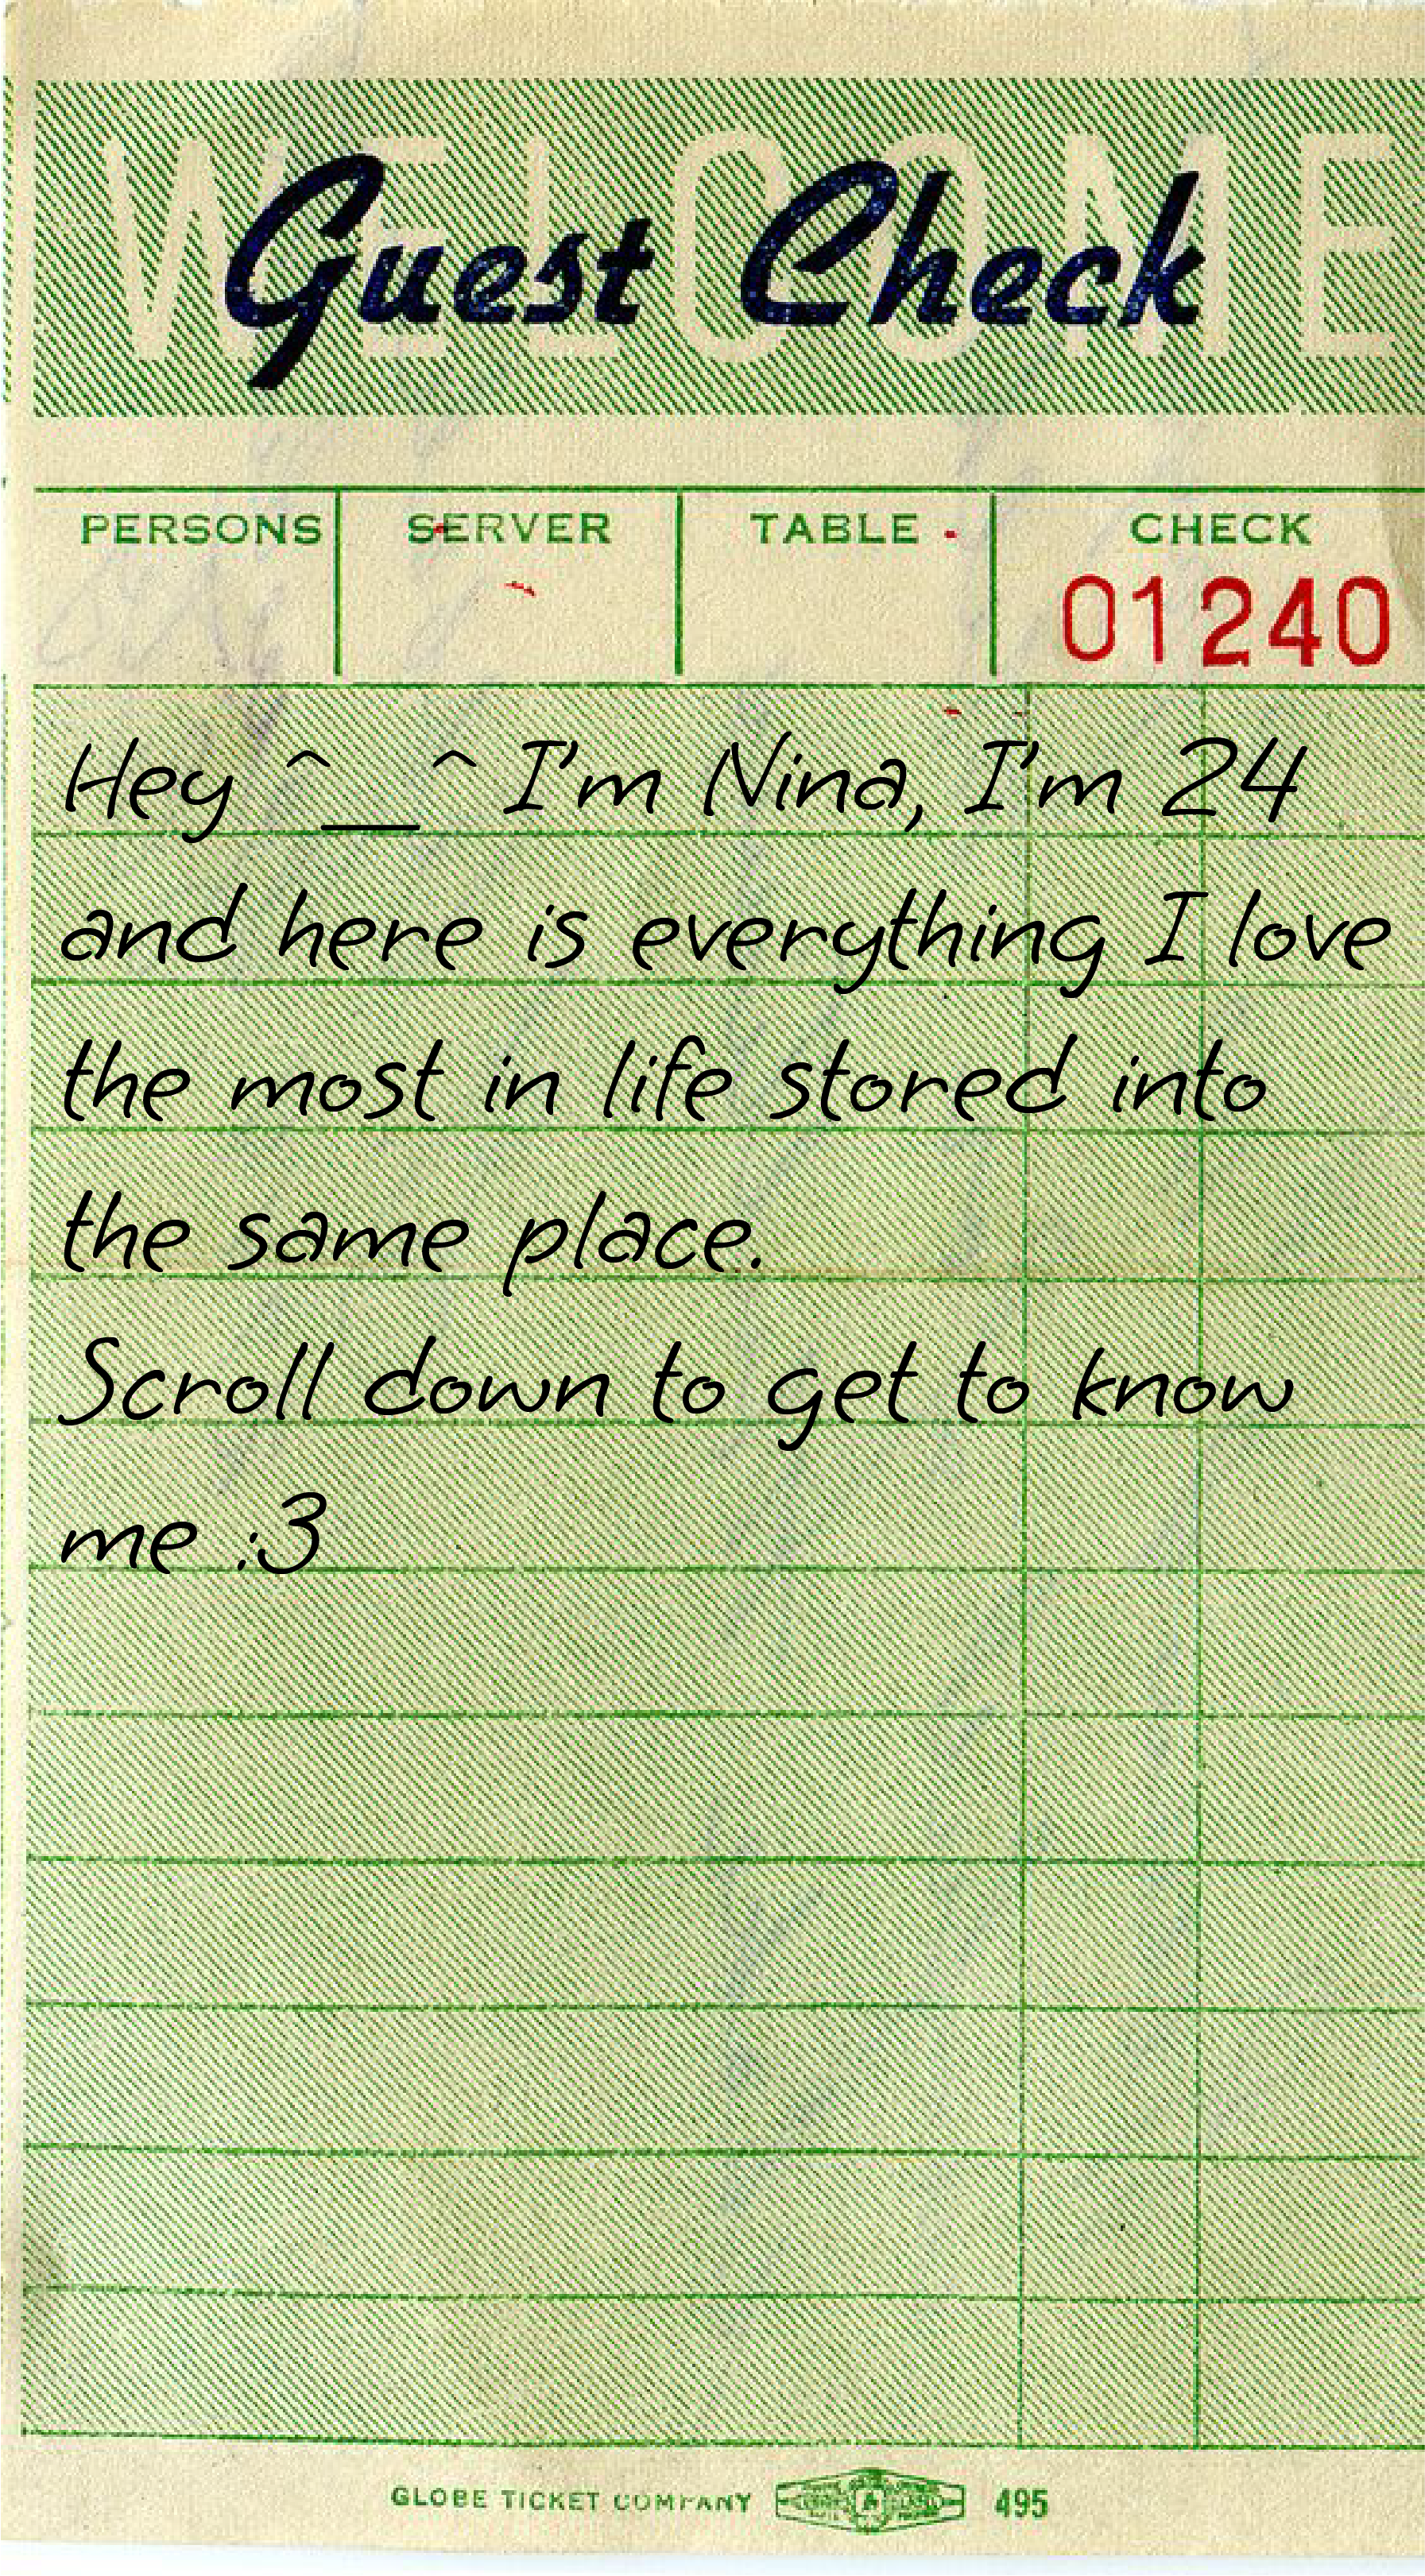 WELCOME
Guest Check
PERSONS SERVER TABLE CHECK
01240
Hey ^__^ I'm Nina, I'm 24
and here is everything I love
the most in life stored into
the same place.
Scroll down to get to know
me :3
GLOBE TICKET COMPANY 495